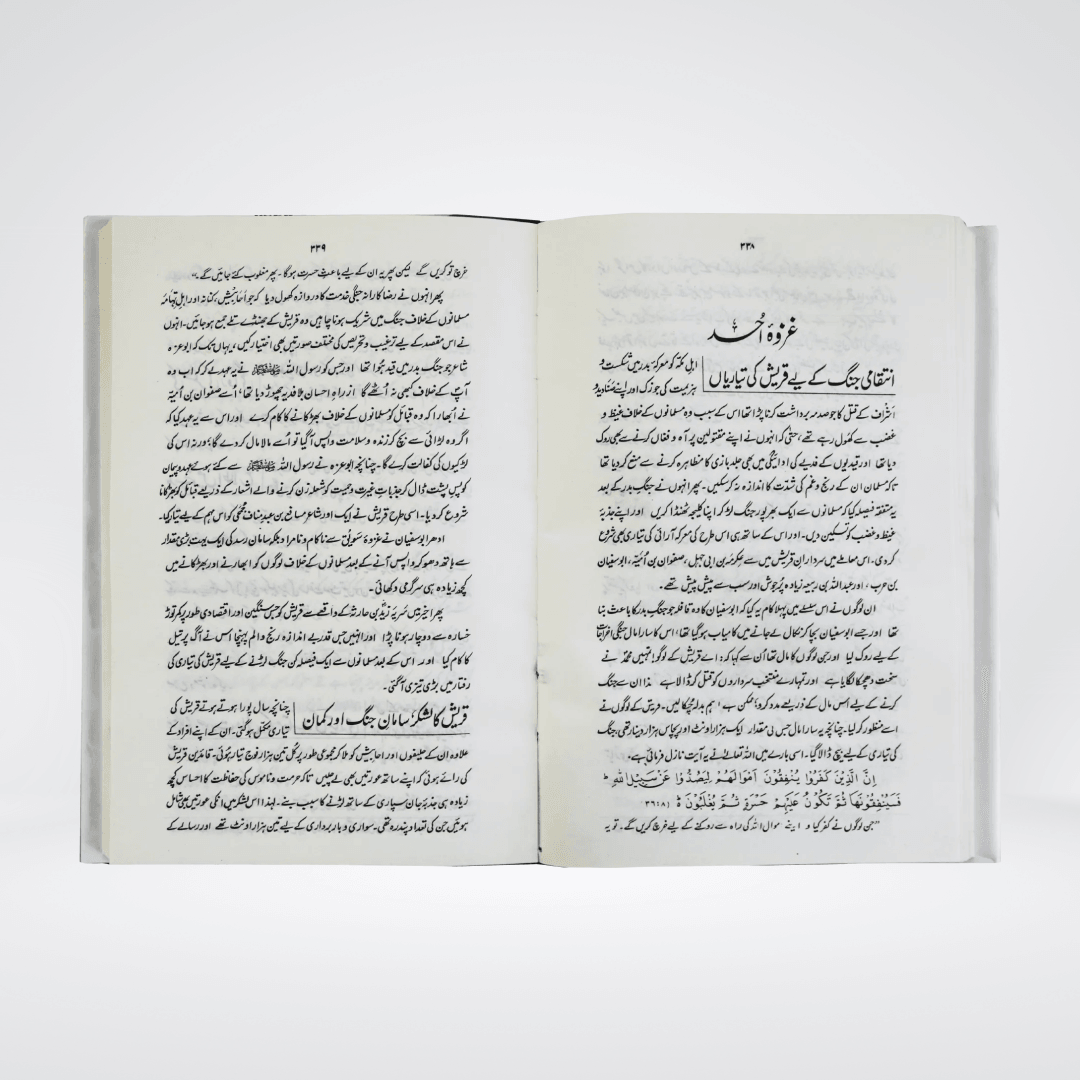 ۳۳۸
غزوۂ اُحد
انتقامی جنگ کے لیے قریش کی تیاریاں
اہل مکہ کو معرکۂ بدر میں شکست و
ہزیمت کی جو زک اور اپنے صنادید و
اشراف کے قتل کا جو صدمہ برداشت کرنا پڑا تھا اس کے سبب وہ مسلمانوں کے خلاف غیظ و
غضب سے کھول رہے تھے، حتیٰ کہ انہوں نے اپنے مقتولین پر آہ و فغاں کرنے سے بھی روک
دیا تھا اور قیدیوں کے فدیے کی ادائیگی میں بھی جلد بازی کا مظاہرہ کرنے سے منع کردیا تھا
تاکہ مسلمان ان کے رنج و غم کی شدّت کا اندازہ نہ کر سکیں۔ پھر انہوں نے جنگِ بدر کے بعد
یہ متفقہ فیصلہ کیا کہ مسلمانوں سے ایک بھرپور جنگ لڑ کر اپنا کلیجہ ٹھنڈا کریں اور اپنے جذبۂ
غیظ و غضب کو تسکین دیں۔ اور اس کے ساتھ ہی اس طرح کی معرکہ آرائی کی تیاری بھی شروع
کردی۔ اس معاملے میں سردارانِ قریش میں سے عکرمہ بن ابی جہل، صفوان بن اُمیّہ، ابوسفیان
بن حرب، اور عبداللہ بن ربیعہ زیادہ پُرجوش اور سب سے پیش پیش تھے۔
ان لوگوں نے اس سلسلے میں پہلا کام یہ کیا کہ ابوسفیان کا وہ قافلہ جو جنگِ بدر کا باعث بنا
تھا اور جسے ابوسفیان بچا کر نکال لے جانے میں کامیاب ہوگیا تھا، اس کا سارا مال جنگی اخراجات
کے لیے روک لیا اور جن لوگوں کا مال تھا اُن سے کہا کہ: اے قریش کے لوگو! تمہیں محمدؐ نے
سخت دھچکا لگایا ہے اور تمہارے منتخب سرداروں کو قتل کر ڈالا ہے لہذا ان سے جنگ
کرنے کے لیے اس مال کے ذریعے مدد کرو؛ ممکن ہے ہم بدلہ چکا لیں۔ قریش کے لوگوں نے
اسے منظور کرلیا۔ چنانچہ یہ سارا مال جس کی مقدار ایک ہزار اونٹ اور پچاس ہزار دینار تھی، جنگ
کی تیاری کے لیے بیچ ڈالا گیا۔ اسی بارے میں اللہ تعالےٰ نے یہ آیت نازل فرمائی ہے۔
اِنَّ الَّذِیْنَ کَفَرُوْا یُنْفِقُوْنَ اَمْوَالَهُمْ لِیَصُدُّوْا عَنْ سَبِیْلِ اللهِ ؕ
فَسَیُنْفِقُوْنَهَا ثُمَّ تَکُوْنُ عَلَیْهِمْ حَسْرَةً ثُمَّ یُغْلَبُوْنَ ؕ (۸: ۳۶)
”جن لوگوں نے کفر کیا وہ اپنے اموال اللہ کی راہ سے روکنے کے لیے خرچ کریں گے۔ تو یہ
۳۳۹
خرچ تو کریں گے لیکن پھر یہ ان کے لیے باعثِ حسرت ہوگا۔ پھر مغلوب کئے جائیں گے۔“
پھر انہوں نے رضا کارانہ جنگی خدمت کا دروازہ کھول دیا کہ جو اَحابِیش، کنانہ اور اہلِ تِہامَہ
مسلمانوں کے خلاف جنگ میں شریک ہونا چاہیں وہ قریش کے جھنڈے تلے جمع ہوجائیں۔ انہوں
نے اس مقصد کے لیے ترغیب و تحریص کی مختلف صورتیں بھی اختیار کیں، یہاں تک کہ ابوعزہ
شاعر جو جنگِ بدر میں قید ہوا تھا اور جس کو رسول اللہ ﷺ نے یہ عہد لے کر کہ اب وہ
آپؐ کے خلاف کبھی نہ اُٹھے گا ازراہِ احسان بلا فدیہ چھوڑ دیا تھا، اُسے صفوان بن اُمیّہ
نے اُبھارا کہ وہ قبائل کو مسلمانوں کے خلاف بھڑکانے کا کام کرے اور اس سے یہ عہد کیا کہ
اگر وہ لڑائی سے بچ کر زندہ و سلامت واپس آگیا تو اُسے مالا مال کردے گا؛ ورنہ اس کی
لڑکیوں کی کفالت کرے گا۔ چنانچہ ابوعزہ نے رسول اللہ ﷺ سے کئے ہوئے عہد و پیمان
کو پسِ پشت ڈال کر جذباتِ غیرت و حمیت کو شعلہ زن کرنے والے اشعار کے ذریعے قبائل کو بھڑکانا
شروع کردیا۔ اسی طرح قریش نے ایک اور شاعر مسافع بن عبد مناف جُمحی کو اس مہم کے لیے تیار کیا۔
ادھر ابوسفیان نے غزوۂ سَویق سے ناکام و نامراد بلکہ سامانِ رسد کی ایک بہت بڑی مقدار
سے ہاتھ دھو کر واپس آنے کے بعد مسلمانوں کے خلاف لوگوں کو ابھارنے اور بھڑکانے میں
کچھ زیادہ ہی سرگرمی دکھائی۔
پھر اخیر میں سَریّۂ زیدؓ بن حارثہ کے واقعے سے قریش کو جس سنگین اور اقتصادی طور پر کمر توڑ
خسارہ سے دوچار ہونا پڑا اور انہیں جس قدر بے اندازہ رنج و الم پہنچا اس نے آگ پر تیل
کا کام کیا اور اس کے بعد مسلمانوں سے ایک فیصلہ کن جنگ لڑنے کے لیے قریش کی تیاری کی
رفتار میں بڑی تیزی آگئی۔
قریش کا لشکر؛ سامانِ جنگ اور کمان
چنانچہ سال پورا ہوتے ہوتے قریش کی
تیاری مکمل ہوگئی۔ ان کے اپنے افراد کے
علاوہ ان کے حلیفوں اور احابیش کو ملا کر مجموعی طور پر کُل تین ہزار فوج تیار ہوئی۔ قائدینِ قریش
کی رائے ہوئی کہ اپنے ساتھ عورتیں بھی لے چلیں تاکہ حرمت و ناموس کی حفاظت کا احساس کچھ
زیادہ ہی جذبۂ جان سپاری کے ساتھ لڑنے کا سبب بنے۔ لہذا اس لشکر میں انکی عورتیں بھی شامل
ہوئیں جن کی تعداد پندرہ تھی۔ سواری و بار برداری کے لیے تین ہزار اونٹ تھے اور رسالے کے